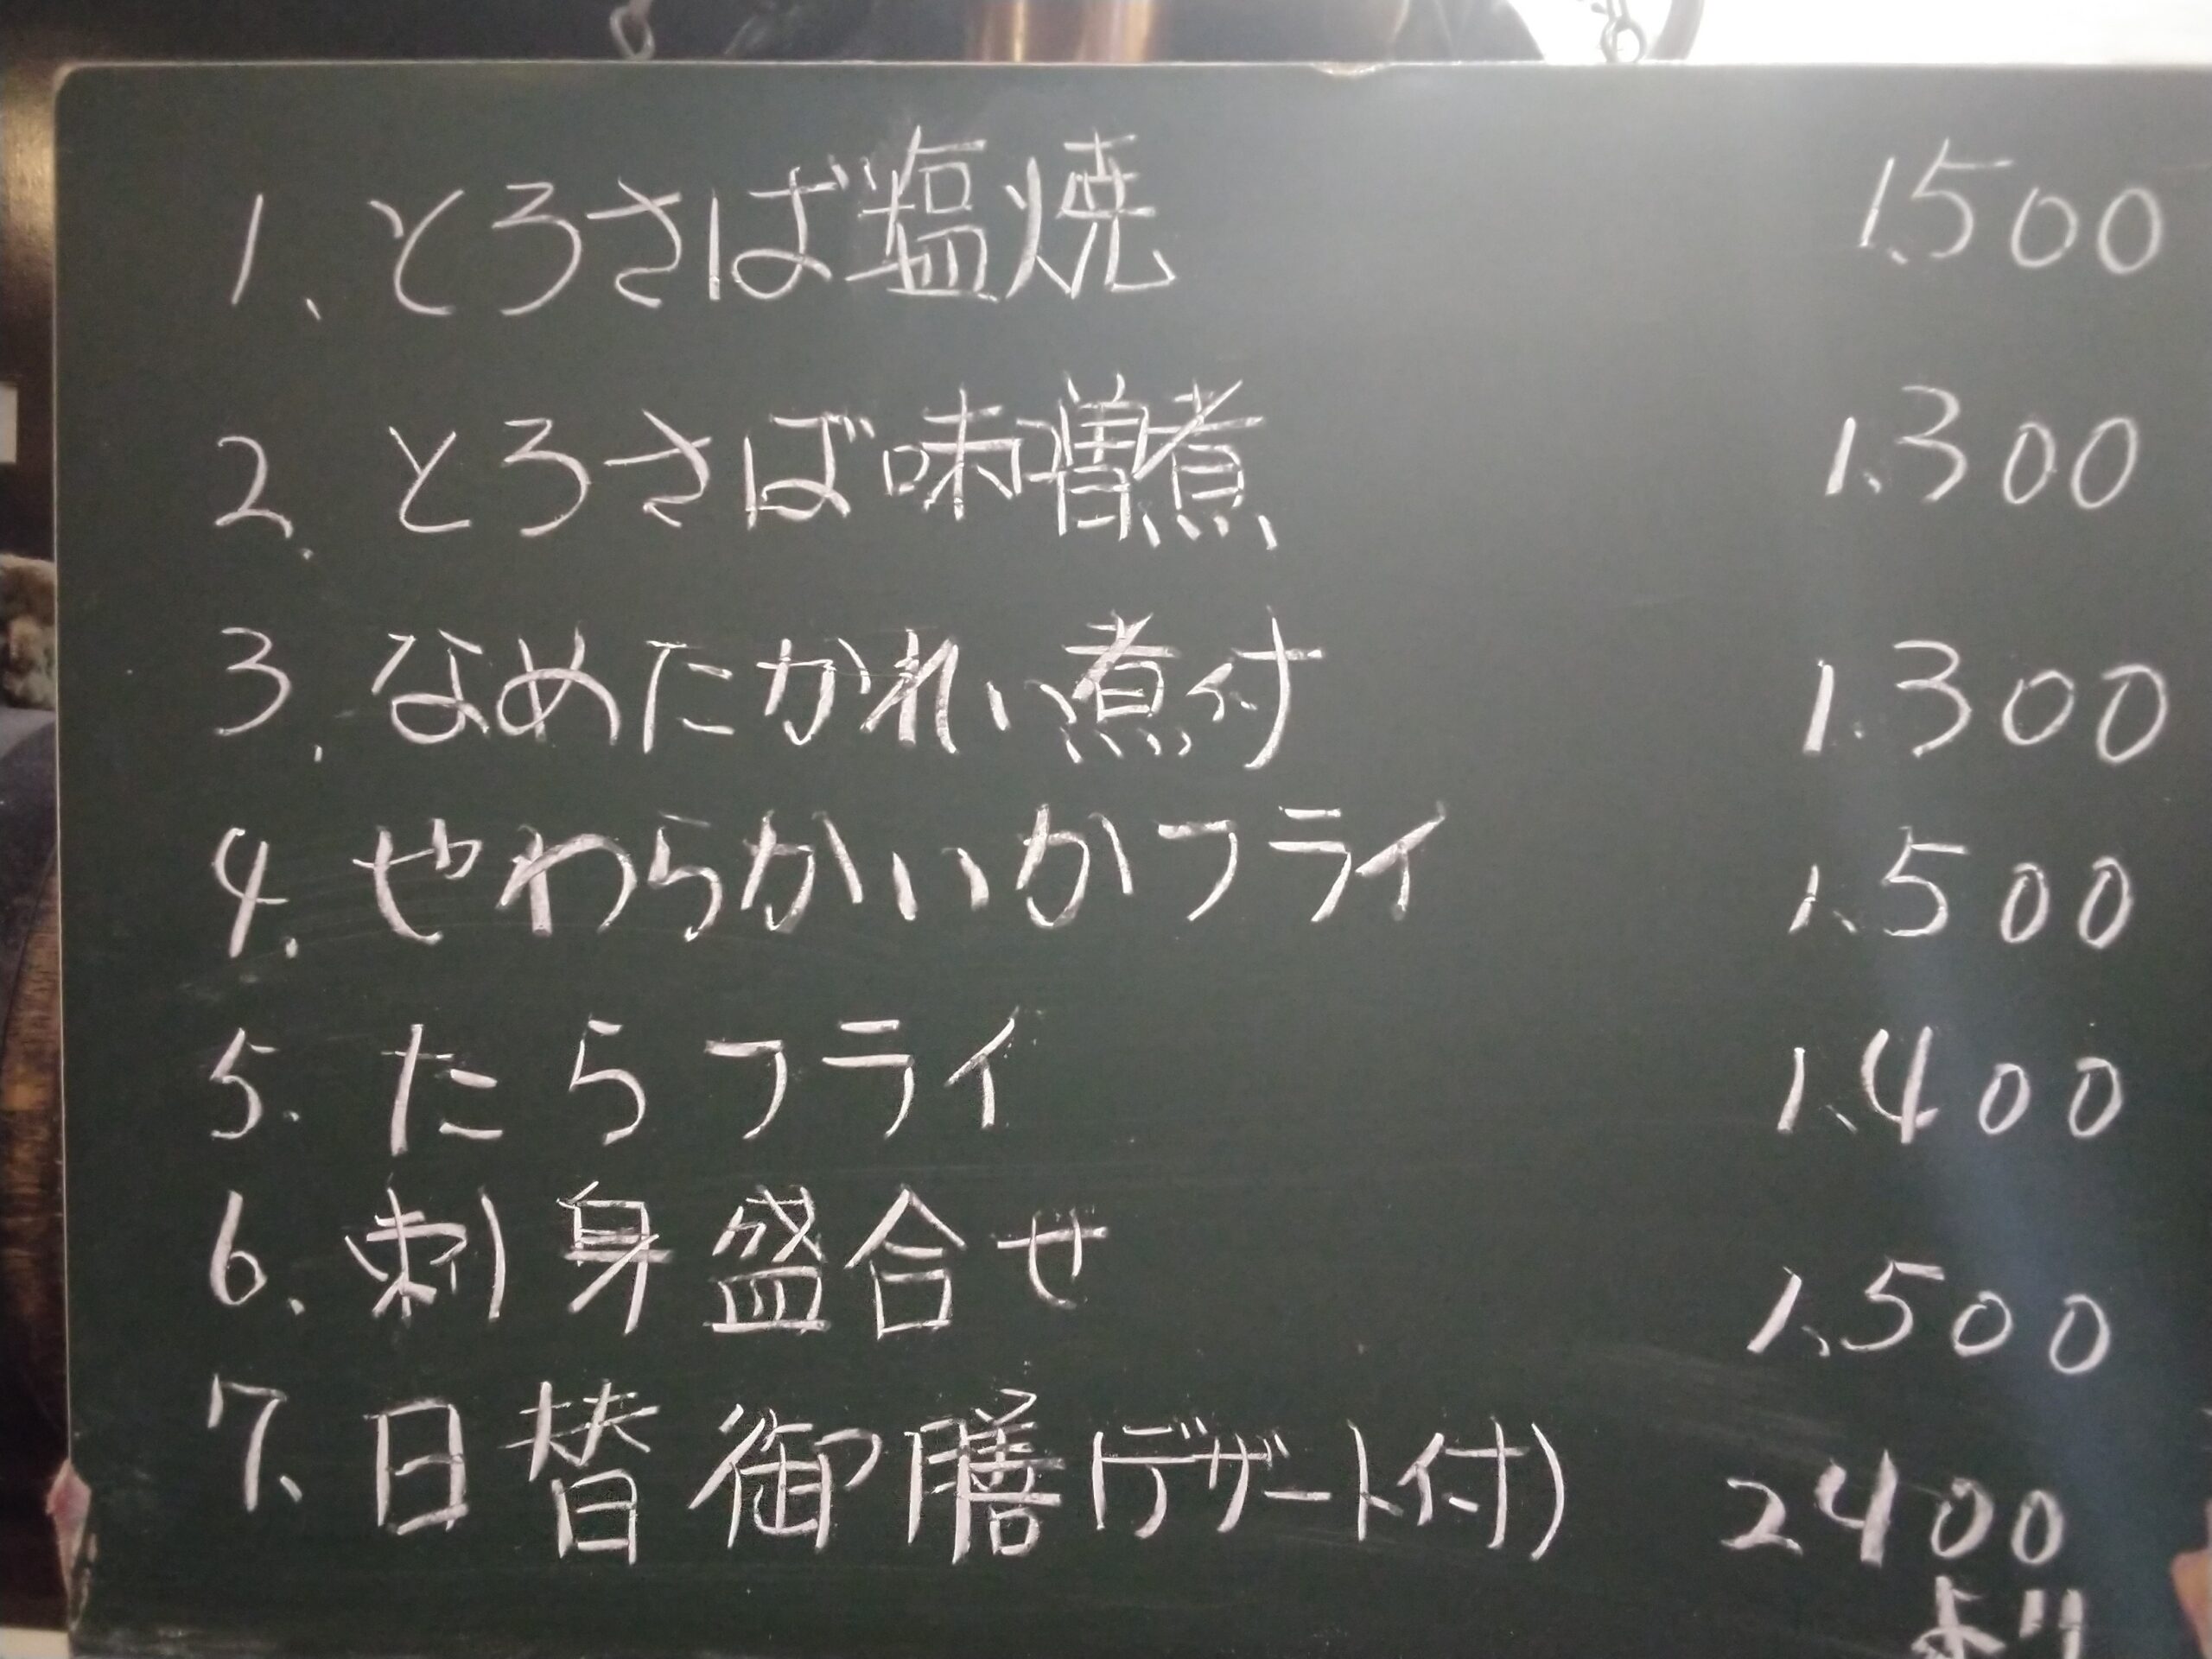 1、とろさば塩焼 1,500
2、とろさば味噌煮 1,300
3、なめたかれい煮付 1.300
4、やわらかいかフライ 1,500
5、たらフライ 1,400
6、刺身盛合せ 1,500
7、日替御膳(デザート付) 2400
より